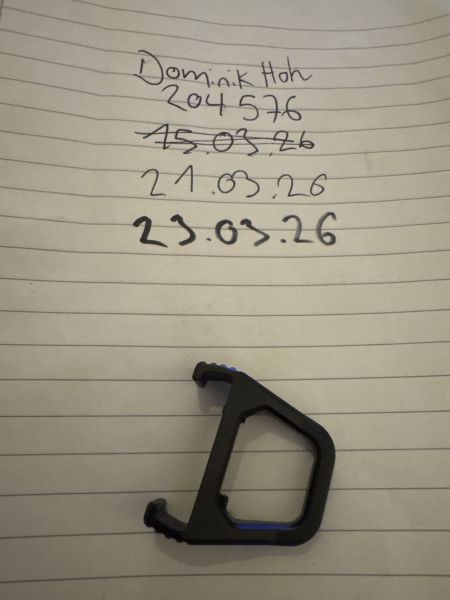 Dominik Hoh
204576
15.03.26
21.03.26
23.03.26